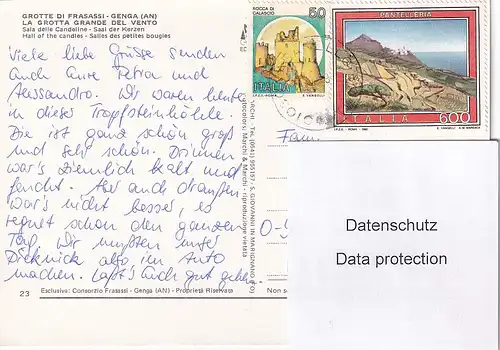 GROTTE DI FRASASSI - GENGA (AN)
LA GROTTA GRANDE DEL VENTO
Sala delle Candeline - Saal der Kerzen
Hall of the candles - Salles des petites bougies
Viele liebe Grüsse senden
Euch Eure Petra und
Alessandro. Wir waren heute
in dieser Tropfsteinhöhle.
Sie ist ganz schön groß
und sehr schön. Drinnen
war's ziemlich kalt und
feucht. Aber auch draußen
war's nicht besser, es
regnet schon den ganzen
Tag. Wir mußten unser
Picknick also im Auto
machen. Laßt's Euch gut gehen
23 Esclusiva: Consorzio Frasassi - Genga (AN) - Proprietà Riservata
Non
Marchi & Marchi - riproduzione vietata
S. GIOVANNI IN MARIGNANO (FO)
ROCCA DI
CALASCIO
50
ITALIA
I.P.Z.S. - ROMA
E. VANGELLI
PANTELLERIA
ITALIA 600
I.P.Z.S. - ROMA
Fam.
Datenschutz
Data protection